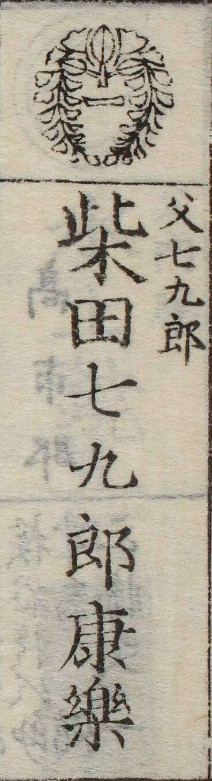 父七九郎
柴田七九郎康樂